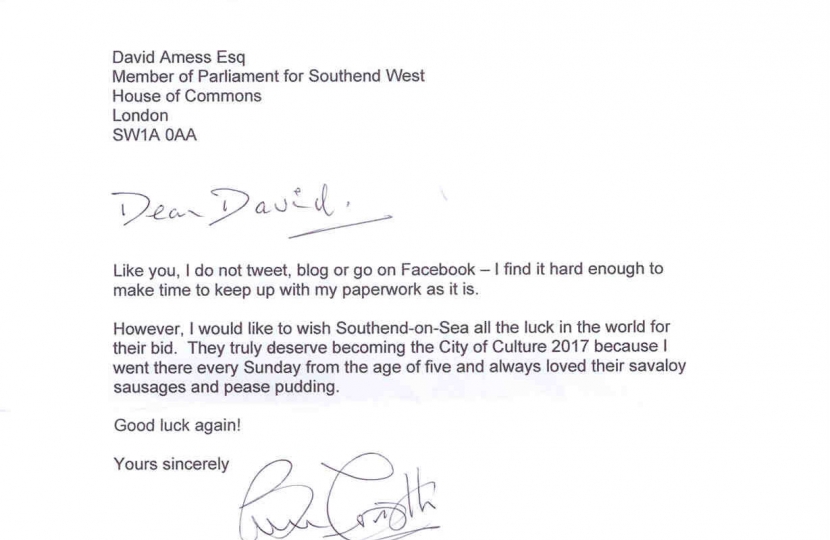 David Amess Esq
Member of Parliament for Southend West
House of Commons
London
SW1A 0AA
Dear David.
Like you, I do not tweet, blog or go on Facebook – I find it hard enough to
make time to keep up with my paperwork as it is.
However, I would like to wish Southend-on-Sea all the luck in the world for
their bid.  They truly deserve becoming the City of Culture 2017 because I
went there every Sunday from the age of five and always loved their savaloy
sausages and pease pudding.
Good luck again!
Yours sincerely